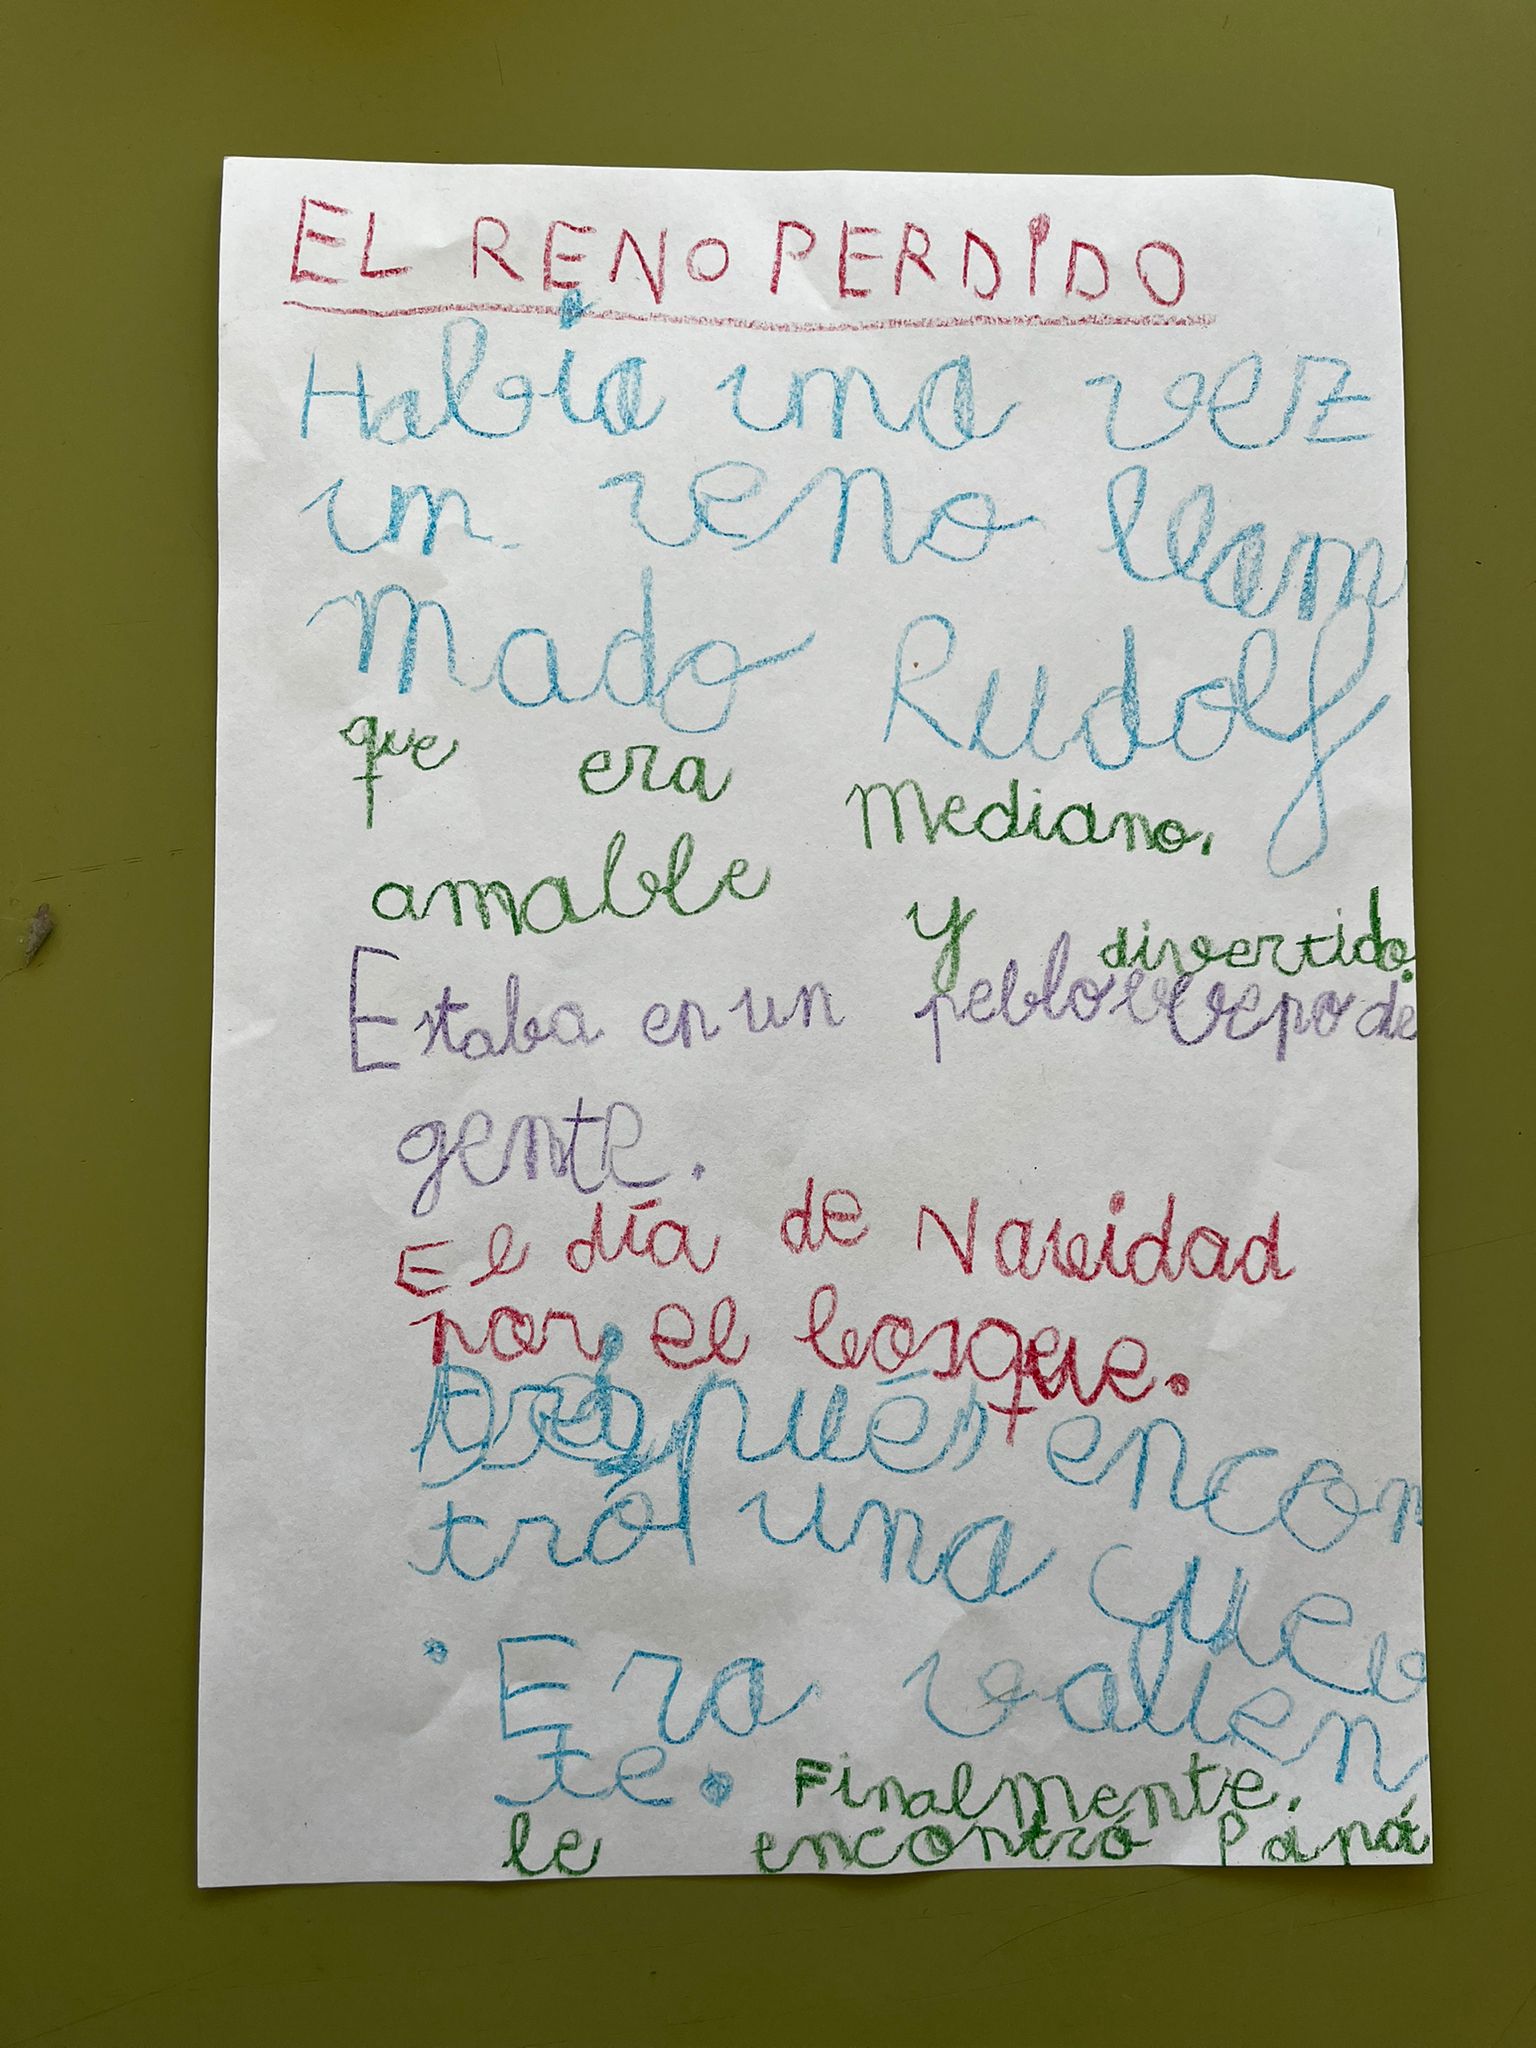 EL RENO PERDIDO
Había una vez
un reno llam
mado Rudolf
que era mediano,
amable y divertido.
Estaba en un peblo lleno de
gente.
El día de Navidad
por el bosque.
Después encon
tró una cuev
. Era valien
te. Finalmente,
le encontró Papá